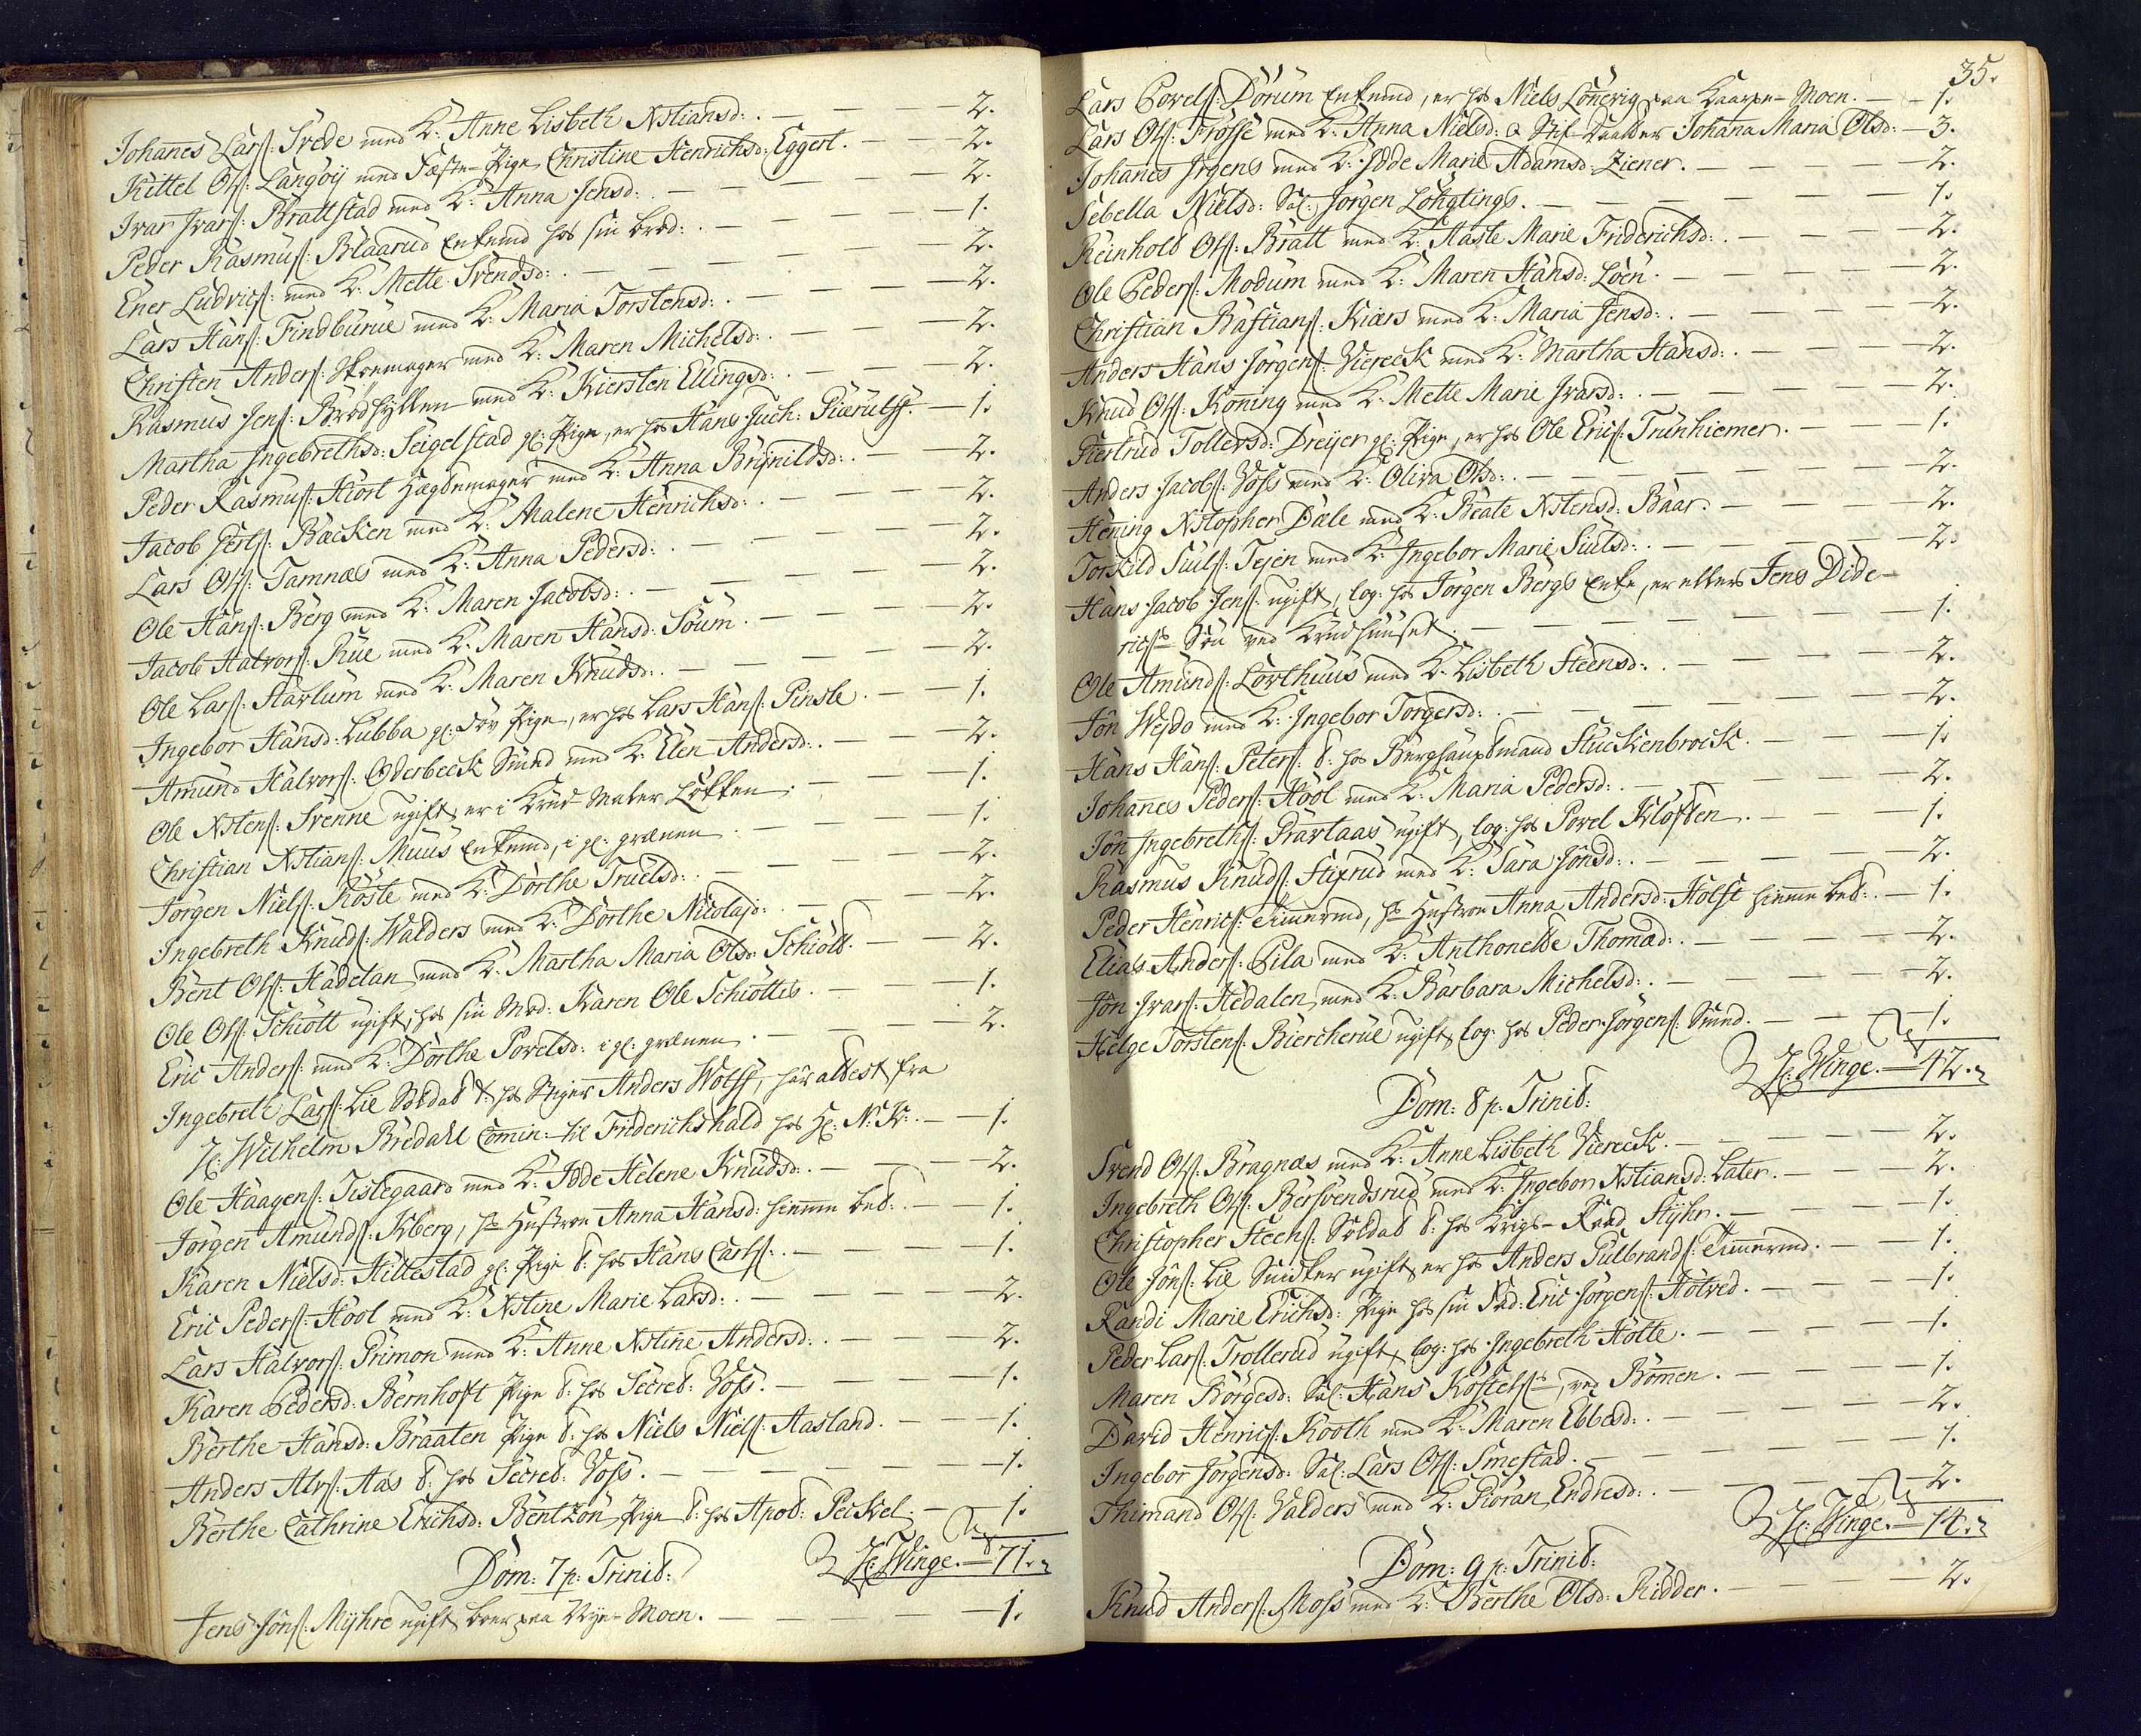 Johanes Larſ: Svede med K: Anne Lisbeth Xstiansd: . — — 2.
Kittel Olſ: Langöij med Fæste-Pige Christine Henrichsd: Eggert. — 2.
Ivar Ivarſ: Brattstad med K: Anna Jensd: — — — 2.
Peder Rasmuſ: Blaarud Enkemd hos sin brod: . — — — 1.
Ener Ludvicſ: med K: Mette Svendsd: . — — — 2.
Lars Hanſ: Findburue med K: Maria Torstensd: . — — 2.
Christen Anderſ: Skoemager med K: Maren Michelsd: . — — 2.
Rasmus Jenſ: Brødhyllen med K: Kiersten Ellingsd: . — — 2.
Martha Ingebrethsd: Seigelstad gl: Pige, er hos Hans Juch: Giærulff. — 1.
Peder Rasmuſ: Hiort Hægdemager med K: Anna Brÿnildsd: . — 2.
Jacob Gertſ: Backen med K: Malene Henrichsd: . — — 2.
Lars Olſ: Tamnæs med K: Anna Pedersd: . — — 2.
Ole Hanſ: Berg med K: Maren Jacobsd: . — — — 2.
Jacob Halvorſ: Rue med K: Maren Hansd: Söum. — — 2.
Ole Larſ: Harlum med K: Maren Knudsd: . — — — 2.
Ingebor Hansd: Lubba gl: Döv Pige, er hos Lars Hanſ: Pinsle. — 1.
Amund Halvorſ: Oderbeck Smed med K: Elen Andersd: . — — 2.
Ole Xstenſ: Svenne ugift, er i Krud-Maker Løkken. — 1.
Christian Xstianſ: Muus Enkemd, i gl: grænen. — — 1.
Jörgen Nielſ: Röste med K: Dorthe Truelsd: . — — — 2.
Ingebreth Knudſ: Walders med K: Dorthe Nicolajd: . — — 2.
Bent Olſ: Hadelan med K: Martha Maria Olsd: Schiött. — 2.
Ole Olſ: Schiött ugift, hos sin Mod: Karen Ole Schiöttes. — — 1.
Eric Anderſ: med K: Dorthe Povelsd: i gl: grænen. — — — 2.
Ingebreth Larſ: Lie Soldat t: hos Stiger Anders Wolff, har attest fra
H: Wilhelm Bredahl Comin: til Friderichshald hos H: N: K: . — 1.
Ole Haagenſ: Tislegaard med K: Idde Helene Knudsd: . — — 2.
Jörgen Amundſ: Kberg, hs Hustroe Anna Hansd: hiemme bet: . — 1.
Karen Nielsd: Hillestad gl: Pige t: hos Hans Carlſ: . — — 1.
Eric Pederſ: Hool med K: Xstine Marie Larsd: . — — — 2.
Lars Halvorſ: Primon med K: Anne Xstine Andersd: . — — 2.
Karen Pedersd: Bernhoft Pige t: hos Secret: Voſs. — — 1.
Berthe Hansd: Braaten Pige t: hos Niels Nielſ: Aasland. — — 1.
Anders Alvſ: Aas t: hos Secret: Voſs. — — — — 1.
Berthe Cathrine Erichsd: Bentzon Pige t: hos Apot: Peckel. — 1.
H: Winge. — 71.
Dom: 7 p: Trinit:
Jens Jönſ: Mÿhre ugift, boer paa Nye-Moen. — — — 1.
35.
Lars Povelſ: Dörum Enkemd, er hos Niels Lönerig paa Kaarpe-Moen. — 1.
Lars Olſ: Frösse med K: Anna Nielsd: & Stif-Daatter Johana Maria Olsd: — 3.
Johanes Irgens med K: Idde Marie Adamsd: Ziener. — — — 2.
Sebella Nielsd: Sal: Jörgen Löhgtings. — — — — 1.
Reinhold Olſ: Bratt med K: Aaste Marie Friderichsd: . — — 2.
Ole Pederſ: Modum med K: Maren Hansd: Loen. — — — 2.
Christian Bastianſ: Kiærs med K: Maria Jensd: . — — — 2.
Anders Hans Jörgenſ: Viereck med K: Martha Hansd: . — — 2.
Knud Olſ: Koning med K: Mette Marie Ivarsd: . — — — 2.
Giertrud Tollevsd: Dreÿer gl: Pige, er hos Ole Ericſ: Trünhiemer. — 1.
Anders Jacobſ: Voſs med K: Oliva Olsd: . — — — — 2.
Hening Xstopher Dæle med K: Beate Xstensd: Baar. — — 2.
Torkild Siulſ: Tejen med K: Ingebor Marie Siulsd: . — — 2.
Hans Jacob Jenſ: ugift, log: hos Jörgen Bergs Enke, er ellers Jens Dide-
ricſs Søn ved Krudhuuset. — — — — 1.
Ole Amundſ: Lörthuus med K: Lisbeth Steensd: . — — — 2.
Jön Weÿdo med K: Ingebor Torgersd: . — — — — 2.
Hans Hanſ: Peterſ: t: hos Berghauptmand Stuckenbrock. — — 1.
Johanes Pederſ: Hool med K: Maria Pedersd: . — — — 2.
Jön Ingebrethſ: Prærtaas ugift, log: hos Povel Kloften. — — 1.
Rasmus Knudſ: Stixrud med K: Sara Jönsd: . — — — 2.
Peder Henricſ: Timermd, hs Hustroe Anna Andersd: Holst hiemme bet: . — 1.
Elias Anderſ: Pila med K: Anthonette Thomæd: . — — — 2.
Jön Ivarſ: Hedalen med K: Barbara Michelsd: . — — — 2.
Helge Torstenſ: Biercherue ugift, log: hos Peder Jörgenſ: Smed. — — 1.
H: Winge. — 42.
Dom: 8 p: Trinit:
Svend Olſ: Bragnæs med K: Anne Lisbeth Viereck. — — — 2.
Ingebreth Olſ: Bersvendsrud med K: Ingebor Xstiansd: Later. — 2.
Christopher Steenſ: Soldat t: hos Krigs-Raad Stÿhr. — — 1.
Ole Jönſ: Lie Snidker ugift, er hos Anders Gulbrandſ: Timermd. — 1.
Randi Marie Erichsd: Pige hos sin Fad: Eric Jörgenſ: Hotved. — 1.
Peder Larſ: Trollerud ugift, log: hos Ingebreth Holte. — — 1.
Maren Börgesd: Sal: Hans Köstelſs, ved Bommen. — — 1.
David Henricſ: Kooth med K: Maren Ebbesd: . — — — 2.
Ingebor Jörgensd: Sal: Lars Olſ: Smestad. — — — 1.
Thimand Olſ: Valders med K: Giöran Endresd: . — — — 2.
H: Winge. — 14.
Dom: 9 p: Trinit:
Knud Anderſ: Moſs med K: Berthe Olsd: Ridder. — — — 2.